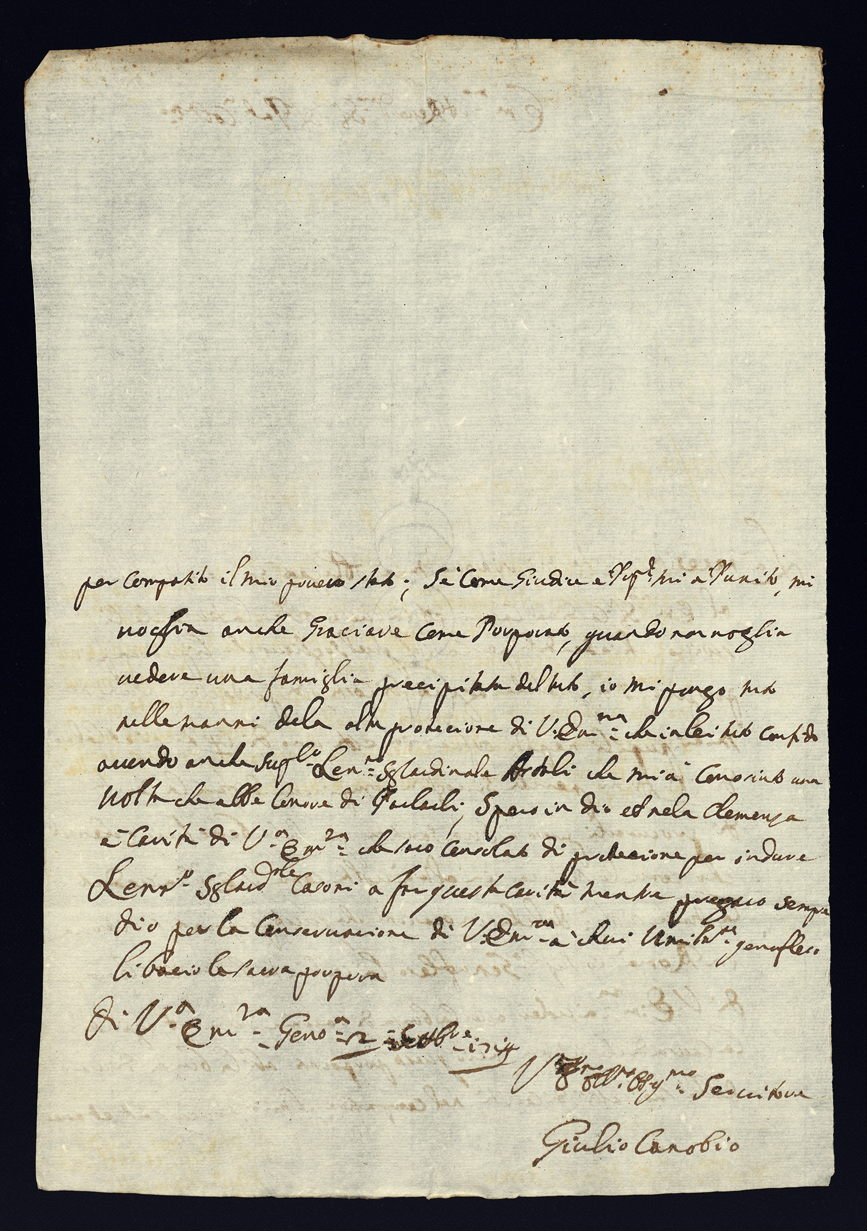 per Compatito il mio povero stato; Se Come Giudice e mi a Punito, mi
voglia anche Graciare Come Porporato, quando non voglia
vedere una famiglia precipitata del tuto, io mi pongo tuto
nelle manni dela alta protecione di V. Em.na che in lei tuto confido
avendo anche Sig.l Cardinale che mi à Conosciuto una
volta che abbe Genova di , Spero in dio et nela Clemenza
e Carità di V.a Em.za che saro Consolato di protecione per indure
L'em.o Casoni a far questa Carità mentre pregaro sempre
dio per la Conservacione di V. Em.za a chui genoflesso
li bacio la sacra porpora
di V.a Em.za Geno.a 12 Settb.re 1714
Servitore
Giulio Canobio